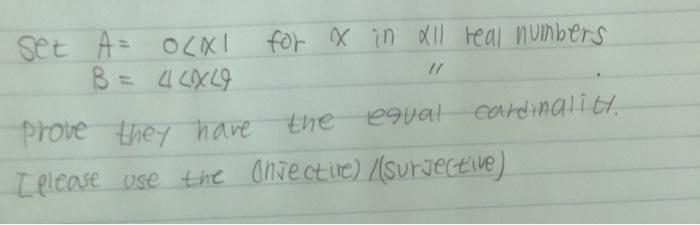 Set A = 0<x1 for x in all real numbers
B = 4<x<9 "
prove they have the equal cardinality.
[please use the (injective)/(surjective)